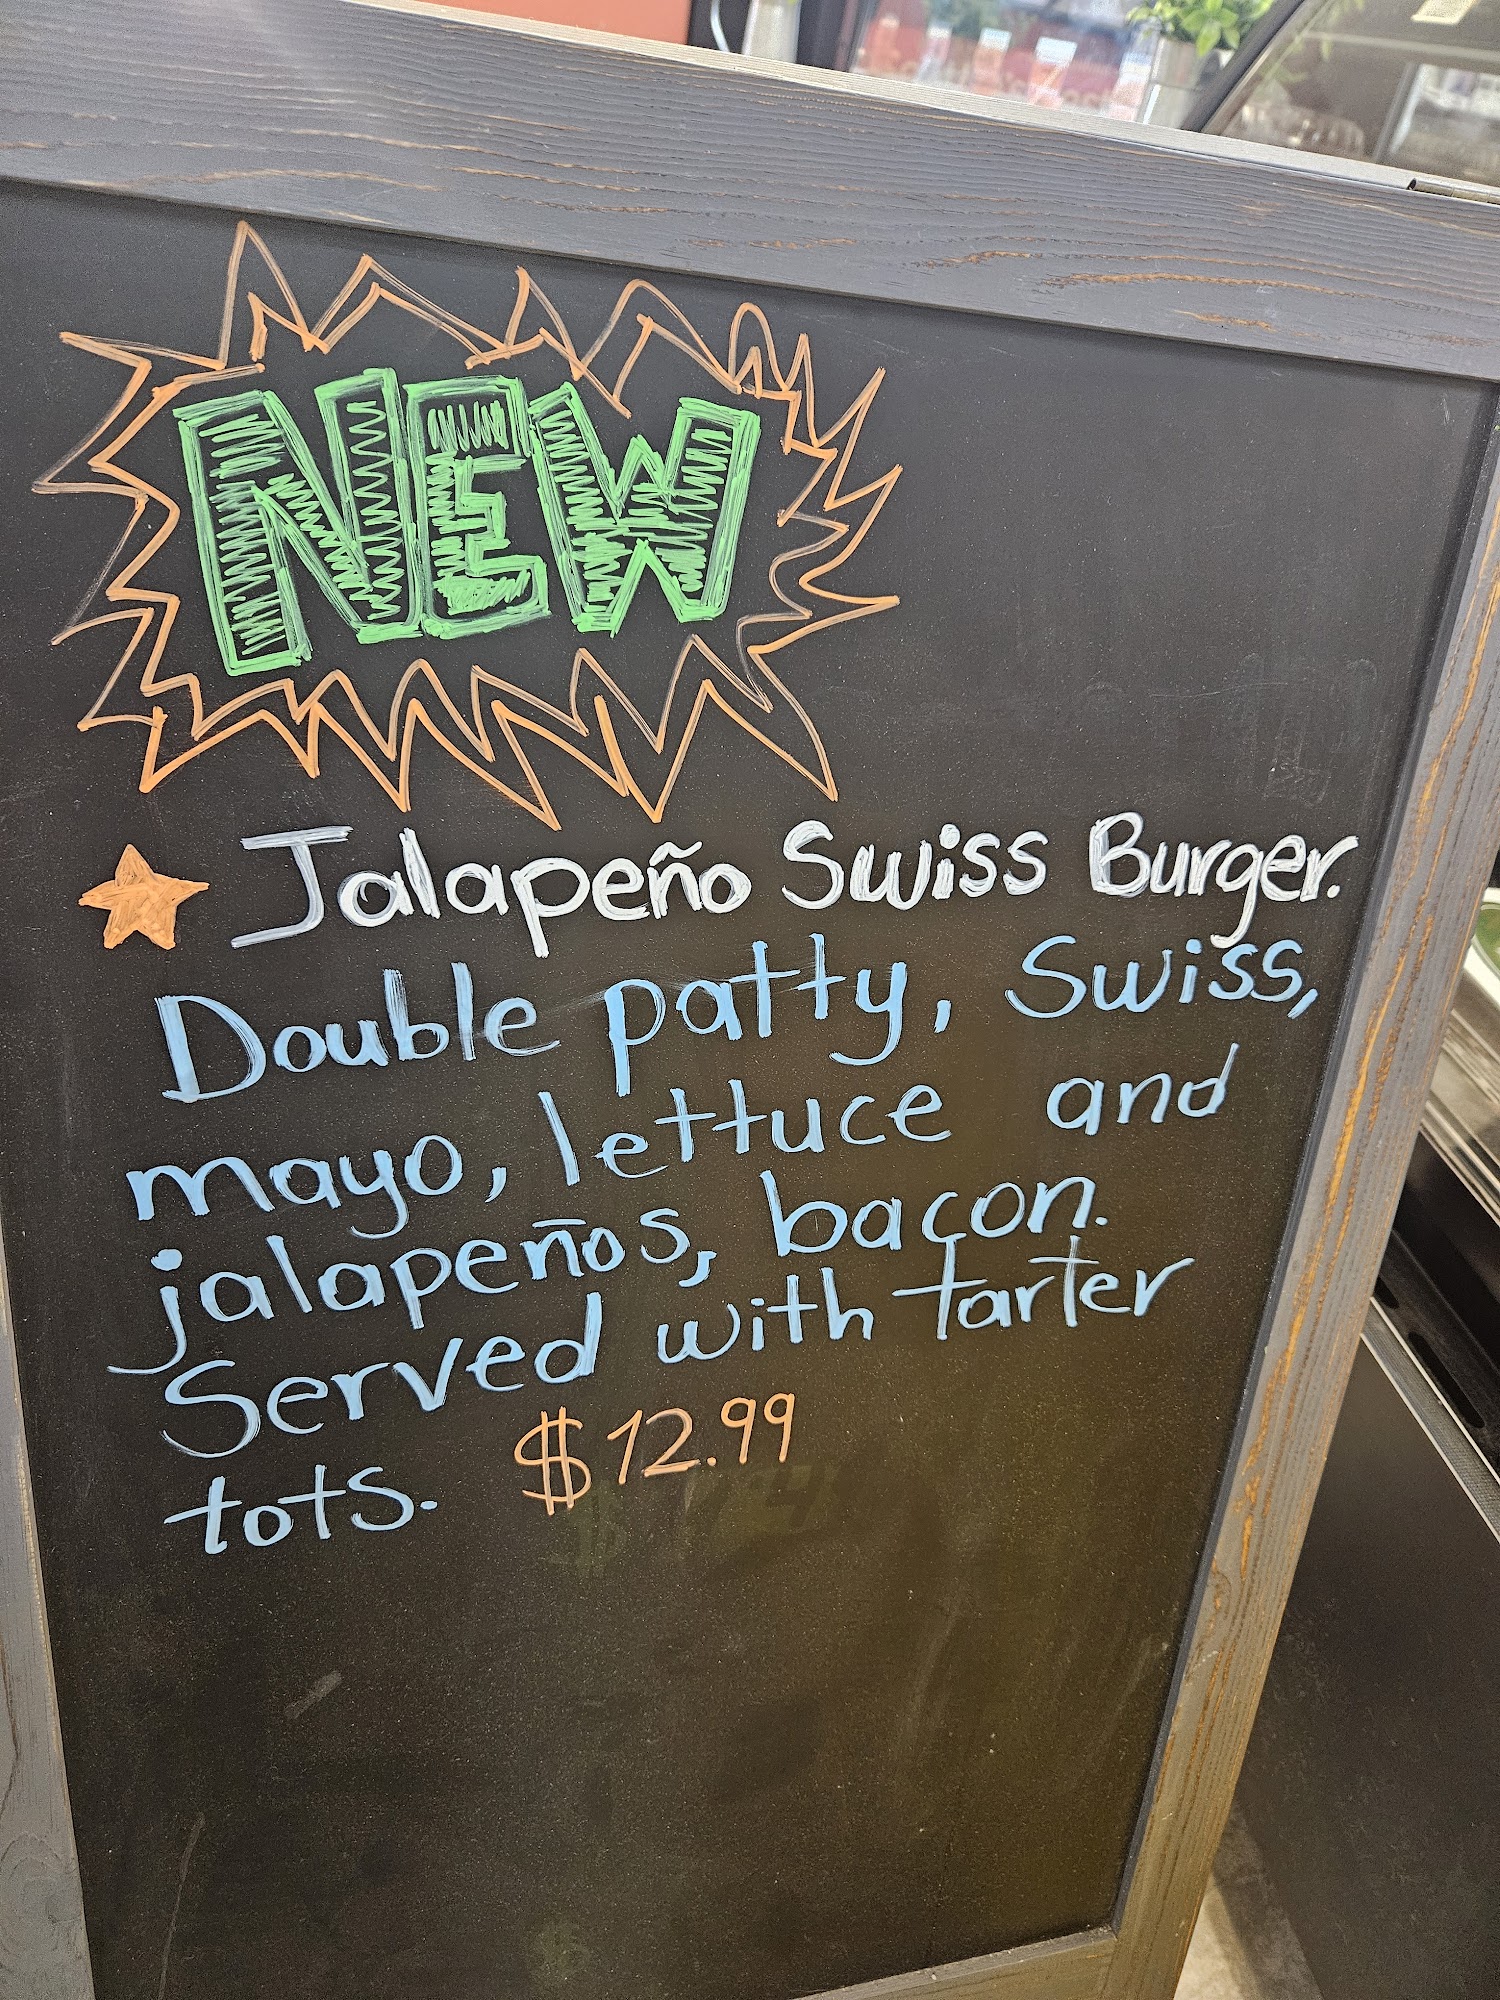 NEW
Jalapeño Swiss Burger.
Double patty, Swiss,
mayo, lettuce and
jalapeños, bacon.
Served with tarter
tots. $12.99